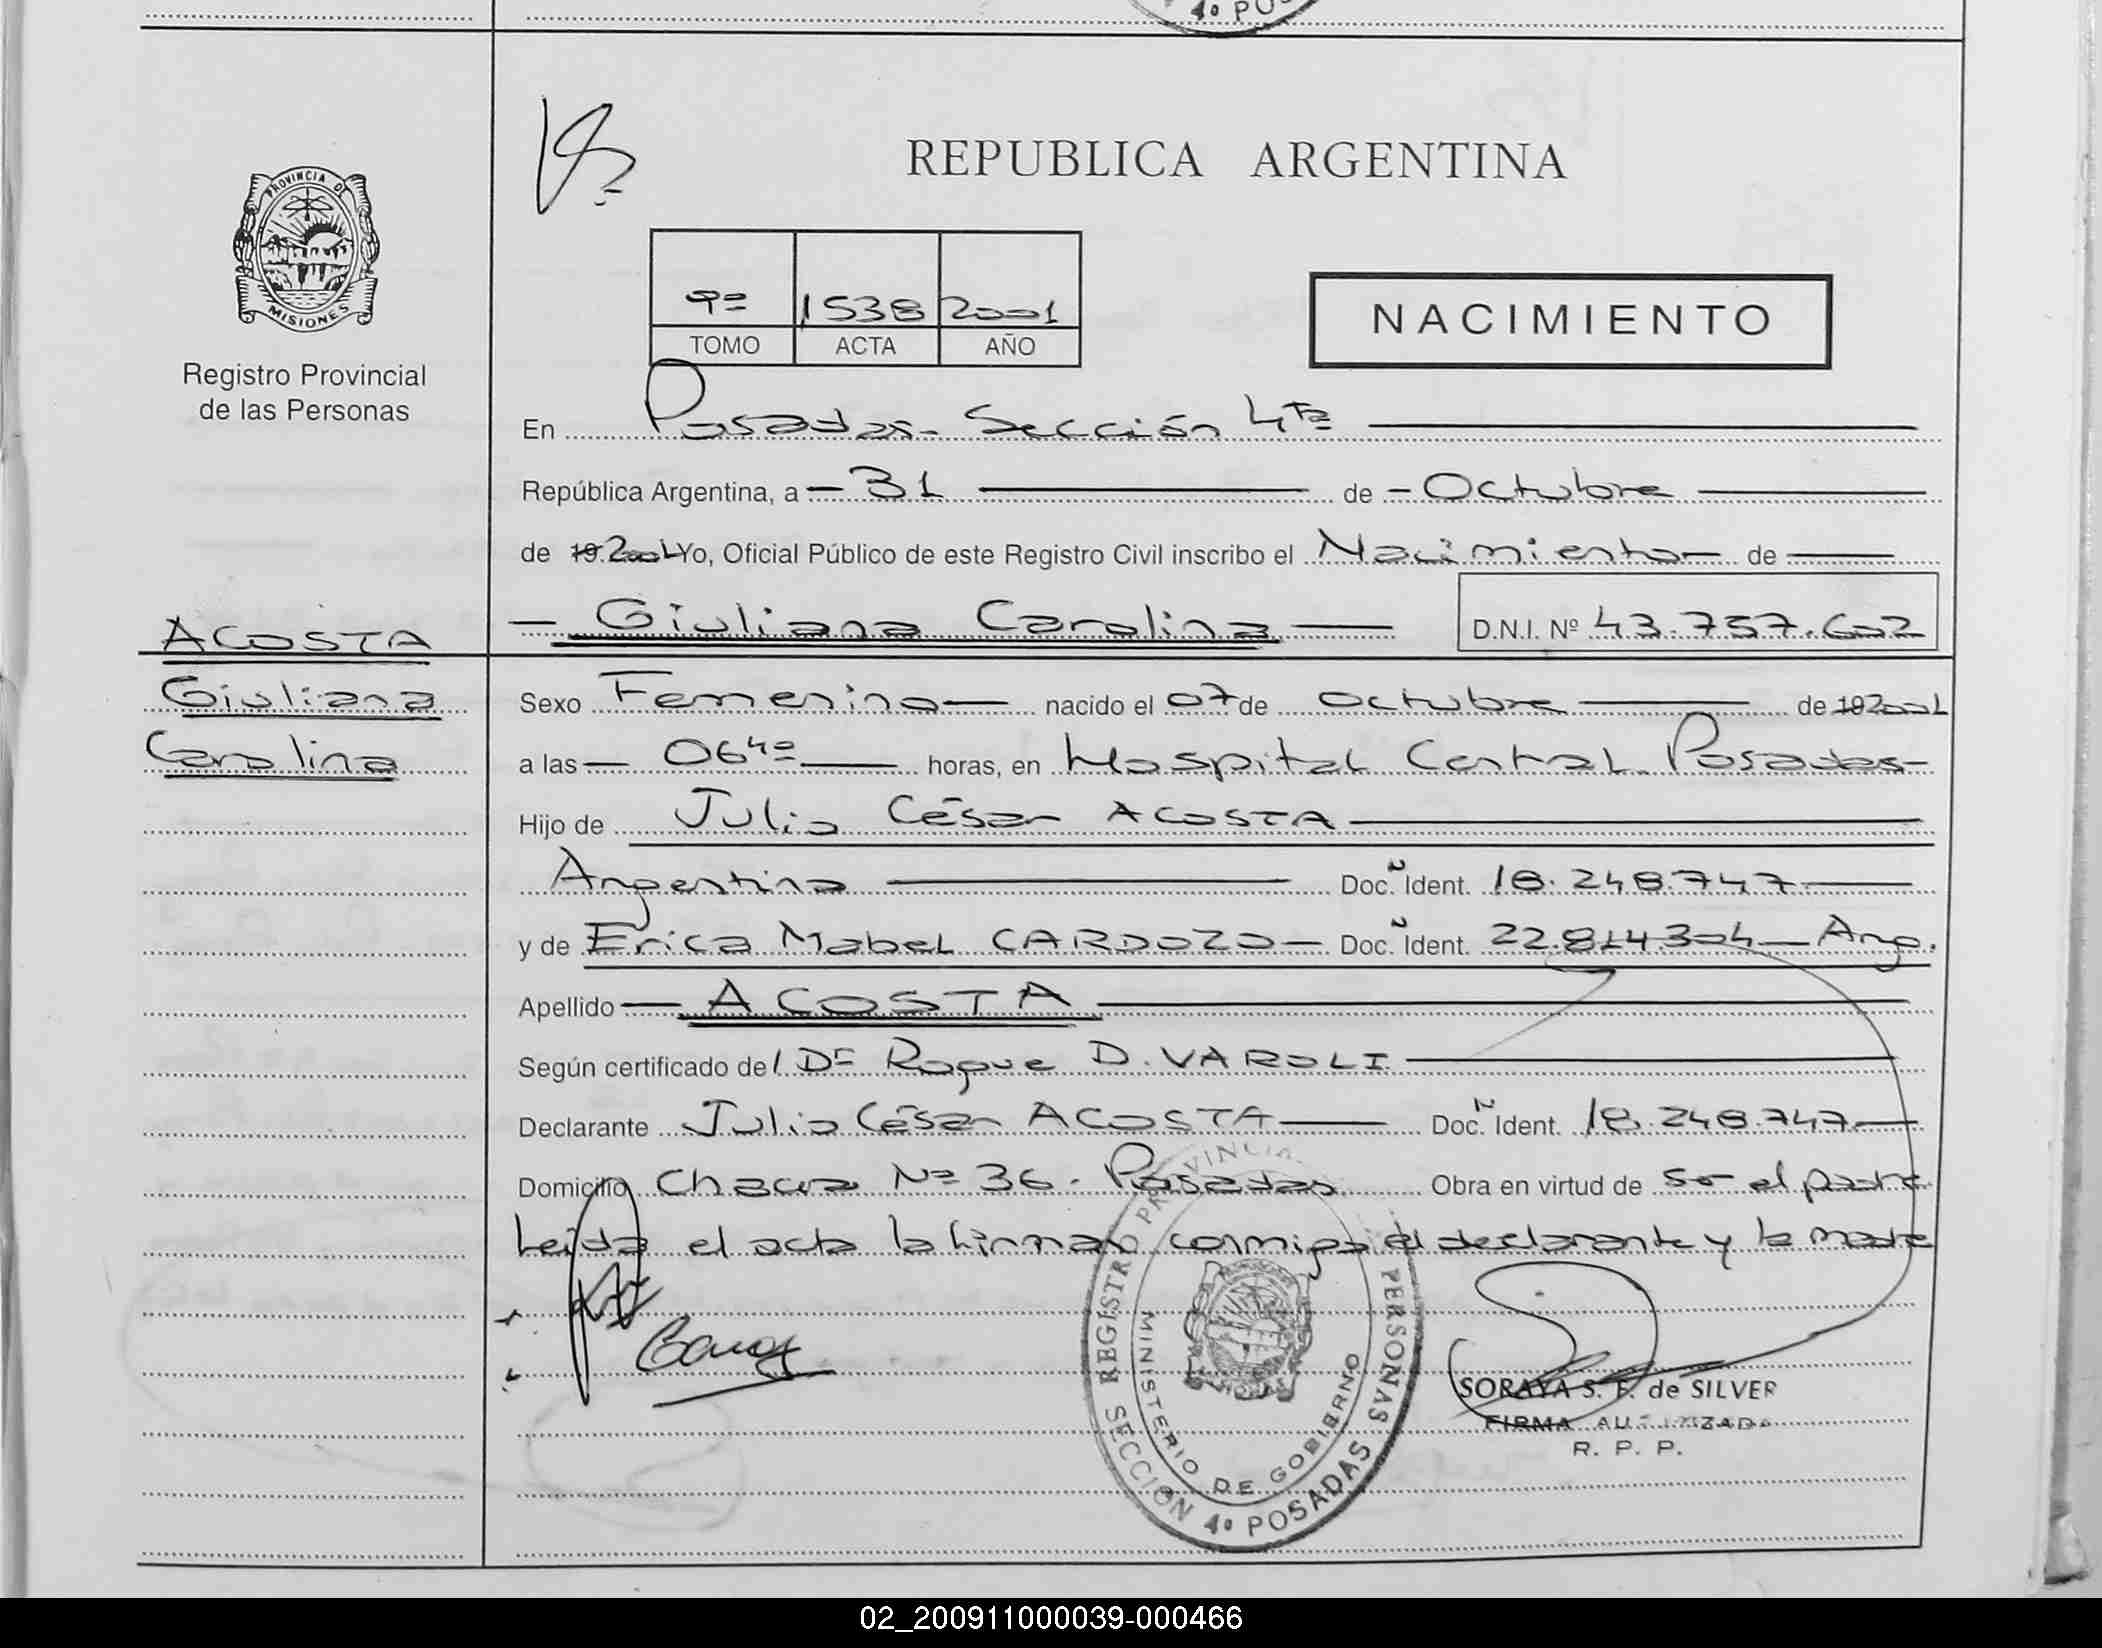 4º POS
PROVINCIA DE
MISIONES
Registro Provincial
de las Personas
REPUBLICA ARGENTINA
9º 1538 2001
TOMO ACTA AÑO
NACIMIENTO
En Posadas - Sección 4ta
República Argentina, a - 31 de - Octubre
de 19 2001 Yo, Oficial Público de este Registro Civil inscribo el Nacimiento de
ACOSTA
Giuliana Carolina
D.N.I. Nº 43.757.602
Giuliana
Carolina
Sexo Femenino nacido el 07 de Octubre de 19 2001
a las 06 40 horas, en Hospital Central Posadas
Hijo de Julio César ACOSTA
Argentino Doc. Ident. 18.248.747
y de Erica Mabel CARDOZO Doc. Ident. 22.814.304 - Arg.
Apellido ACOSTA
Según certificado del Dr Roque D. VAROLI
Declarante Julio César ACOSTA Doc. Ident. 18.248.747
Domicilio Chacra Nº 36 - Posadas Obra en virtud de ser el padre
Leída el acta la firman conmigo el declarante y la madre
REGISTRO PROVINCIAL PERSONAS
MINISTERIO DE GOBIERNO
SECCION 4º POSADAS
SORAYA S. F. de SILVER
FIRMA AUTORIZADA
R. P. P.
02_200911000039-000466